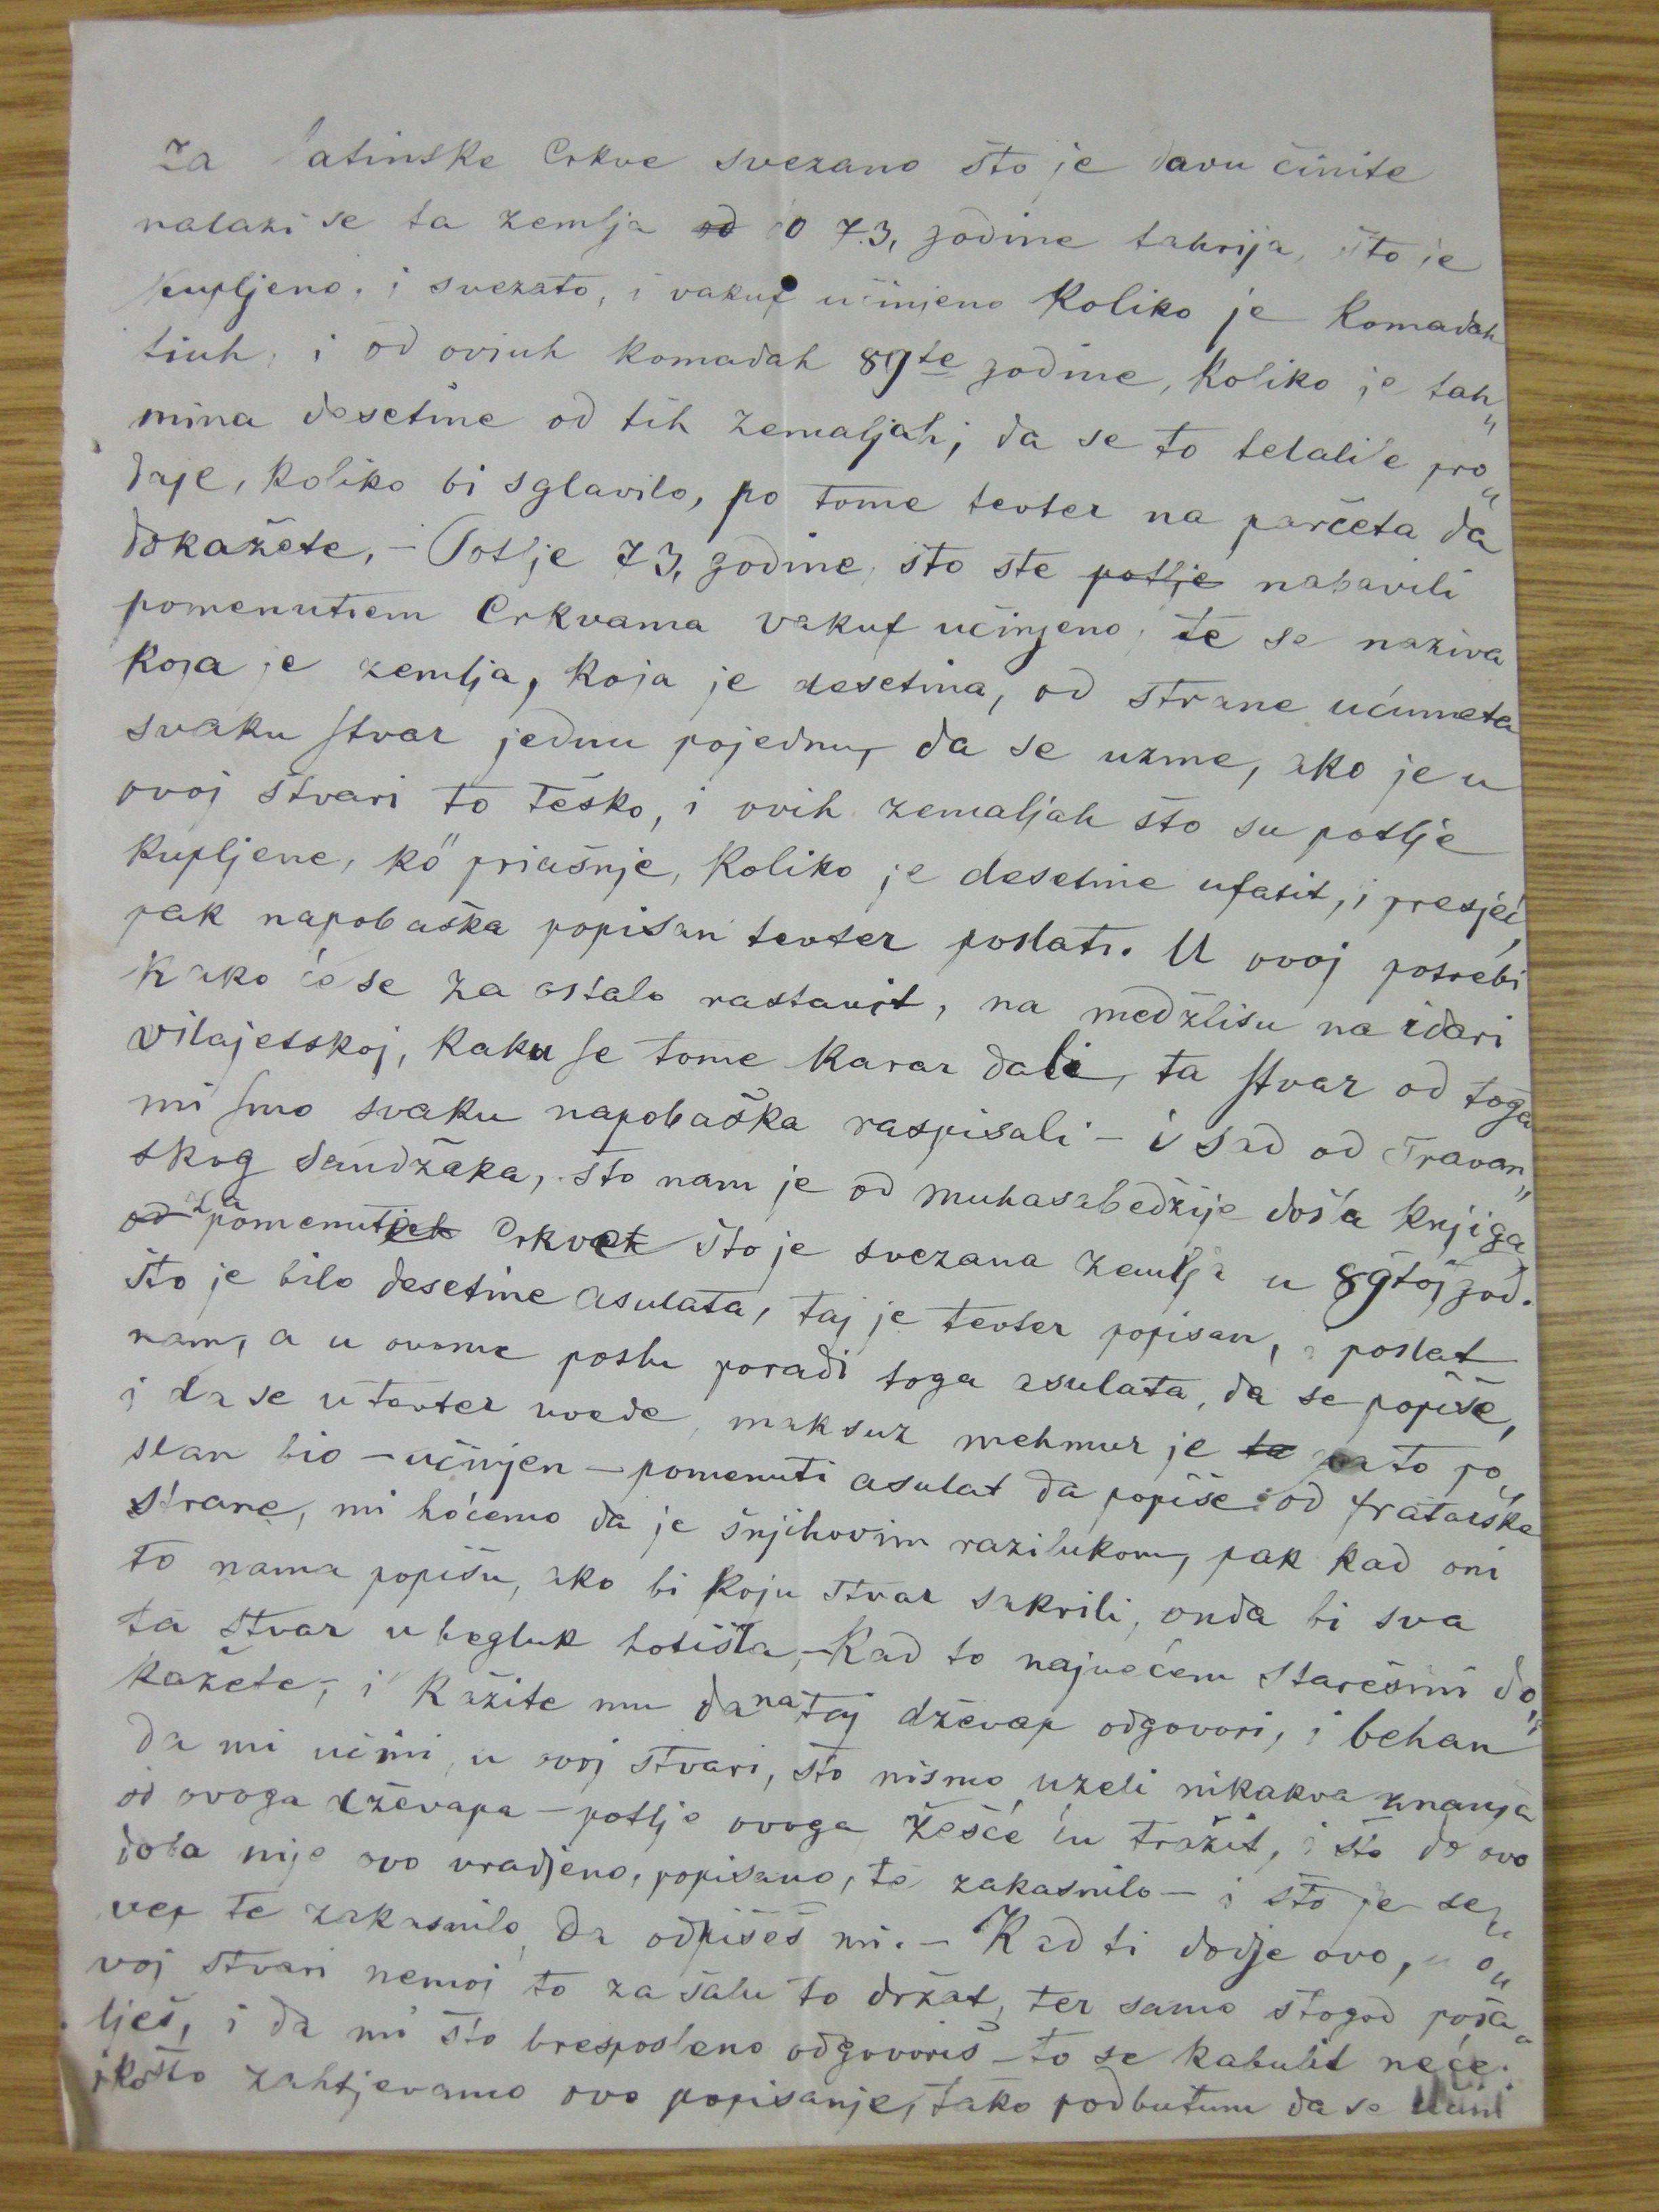 Za latinske Crkve svezano što je davu činite
nalazi se ta zemlja od do 73, godine tahrija, što je
kupljeno, i svezato, i vakuf učinjeno koliko je komadah
tiuh, i od oviuh komadah 89te godine, koliko je tah„
mina desetine od tih zemaljah; da se to telališe pro„
daje, koliko bi sglavilo, po tome tevter na parčeta da
dokažete, – Potlje 73, godine, što ste potlje nabavili
pomenutiem Crkvama vakuf učinjeno, te se naziva
koja je zemlja, koja je desetina, od strane ućumeta
svaku stvar jednu pojednu, da se uzme, ako je u
ovoj stvari to teško, i ovih zemaljah što su potlje
kupljene, kô priašnje, koliko je desetine ufatit, i presjeć,
pak napobaška popisan tevter poslati. U ovoj potrebi
kako će se za ostalo rastavit, na medžlisu na idari
vilajetskoj, kaku se tome karar dali, ta stvar od toga
mi smo svaku napobaška raspisali – i sad od Travan„
skog sandžaka, što nam je od muhasebedžije došla knjiga
od za pomenutieh Crkvah što je svezana zemlja u 89toj god.
što je bilo desetine asulata, taj je tevter popisan, i poslat
nam, a u ovome poslu poradi toga asulata, da se popiše,
i da se u tevter uvede, maksuz mehmur je ta za to po„
slan bio – učinjen – pomenuti asulat da popiše od fratarske
strane, mi hoćemo da je šnjihovim razilukom, pak kad oni
to nama popišu, ako bi koju stvar sakrili, onda bi sva
ta stvar u begluk hotišla, – Kad to najvećem starešini do„
kažete, i kažite mu da na taj dževap odgovori, i behan
da mi učini, u ovoj stvari, što nismo uzeli nikakva znanja
od ovoga dževapa – potlje ovoga žešće ću tražit, i što do ovo
doba nije ovo uradjeno, popisano, te zakasnilo – i što je se„
vep te zakasnilo, da odpišeš mi. – Kad ti dodje ovo, u o„
voj stvari nemoj to za šalu to držat, ter samo štogod poša„
lješ, i da mi što bresposleno odgovoriš – to se kabulit neće.
košto zahtjevamo ovo popisanje, tako podbutum da se